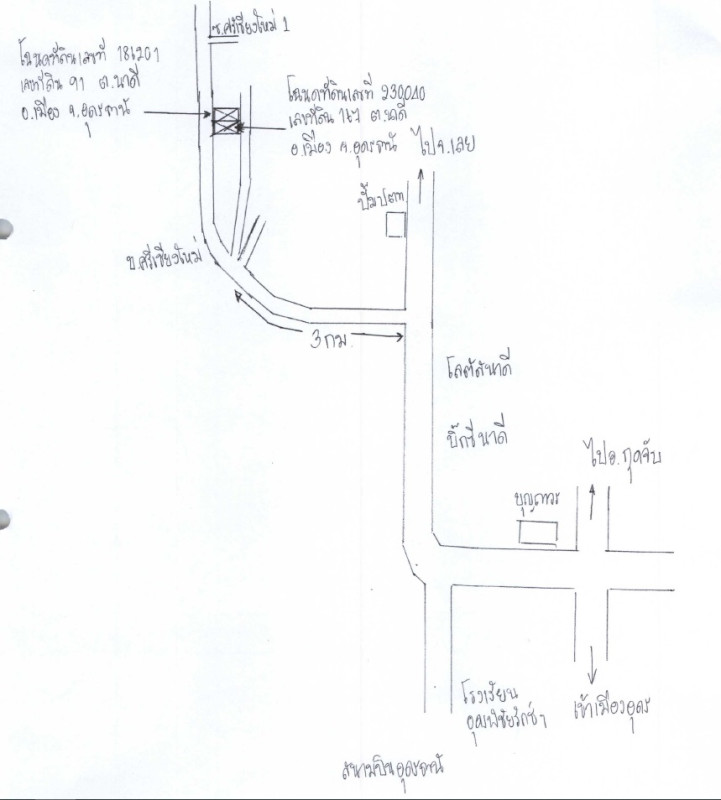 ซ.ศรีเชียงใหม่ 1
โฉนดที่ดินเลขที่ 181201
เลขที่ดิน 91 ต.นาดี
อ.เมือง จ.อุดรธานี
โฉนดที่ดินเลขที่ 230010
เลขที่ดิน 167 ต.นาดี
อ.เมือง จ.อุดรธานี
ไปจ.เลย
ปั๊มปตท
ซ.ศรีเชียงใหม่
3 กม.
โลตัสนาดี
บิ๊กซีนาดี
ไปอ.กุดจับ
บุญถาวร
โรงเรียน
เข้าเมืองอุดร
สนามบินอุดรธานี